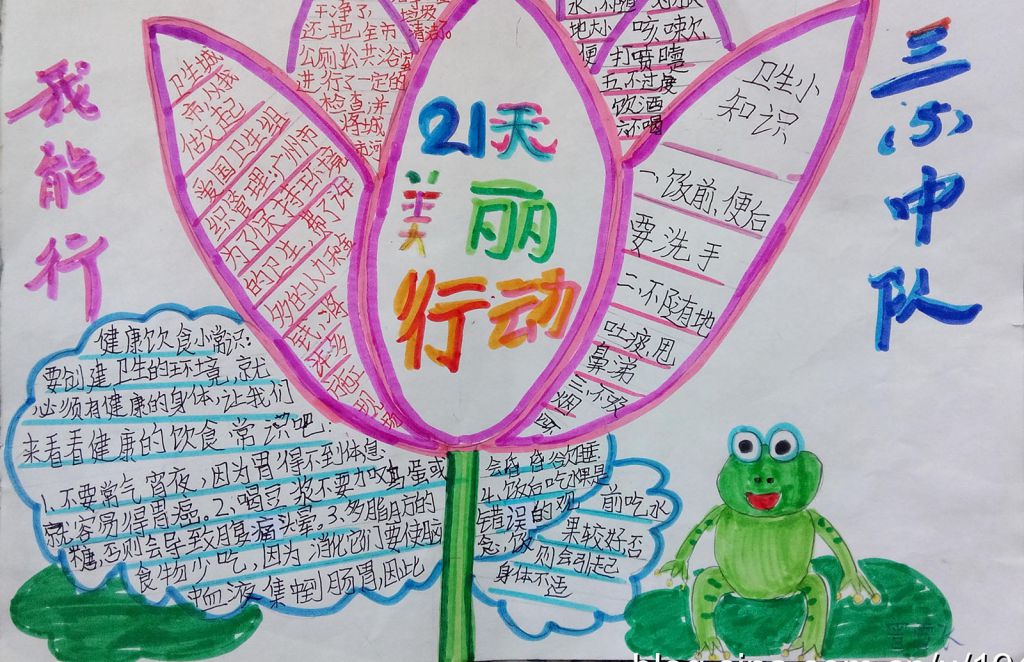 我能行
21天
美丽
行动
三(5)中队
卫生城
市从我
做起
爱国卫生组
织管理:广州市
为了保持环境
的卫生,费了许
多的人力和金
钱,将
许多
干净了,垃圾
还把全市
清洁。
公厕公共浴室
进行了一定的
检查,并
将城
市河
地大小
咳嗽、
便
打喷嚏
五、不过度
饮酒
六不喝
卫生小
知识
一、饭前、便后
要洗手
二、不随地
吐痰,甩
鼻涕
三、不吸
烟
健康饮食小常识:
要创建卫生的环境,就
必须有健康的身体,让我们
来看看健康的饮食常识吧:
1.不要常气宵夜,因为胃得不到休息
就容易得胃癌。2.喝豆浆不要加吹鸟蛋或
糖,否则会导致腹痛头晕。3.多脂肪的
食物少吃,因为消化它们要使脑
中血液集中到肠胃,因此
会昏昏欲睡
4.饭后吃水果是
错误的观
念,饭
前吃水
果较好否
则会引起
身体不适